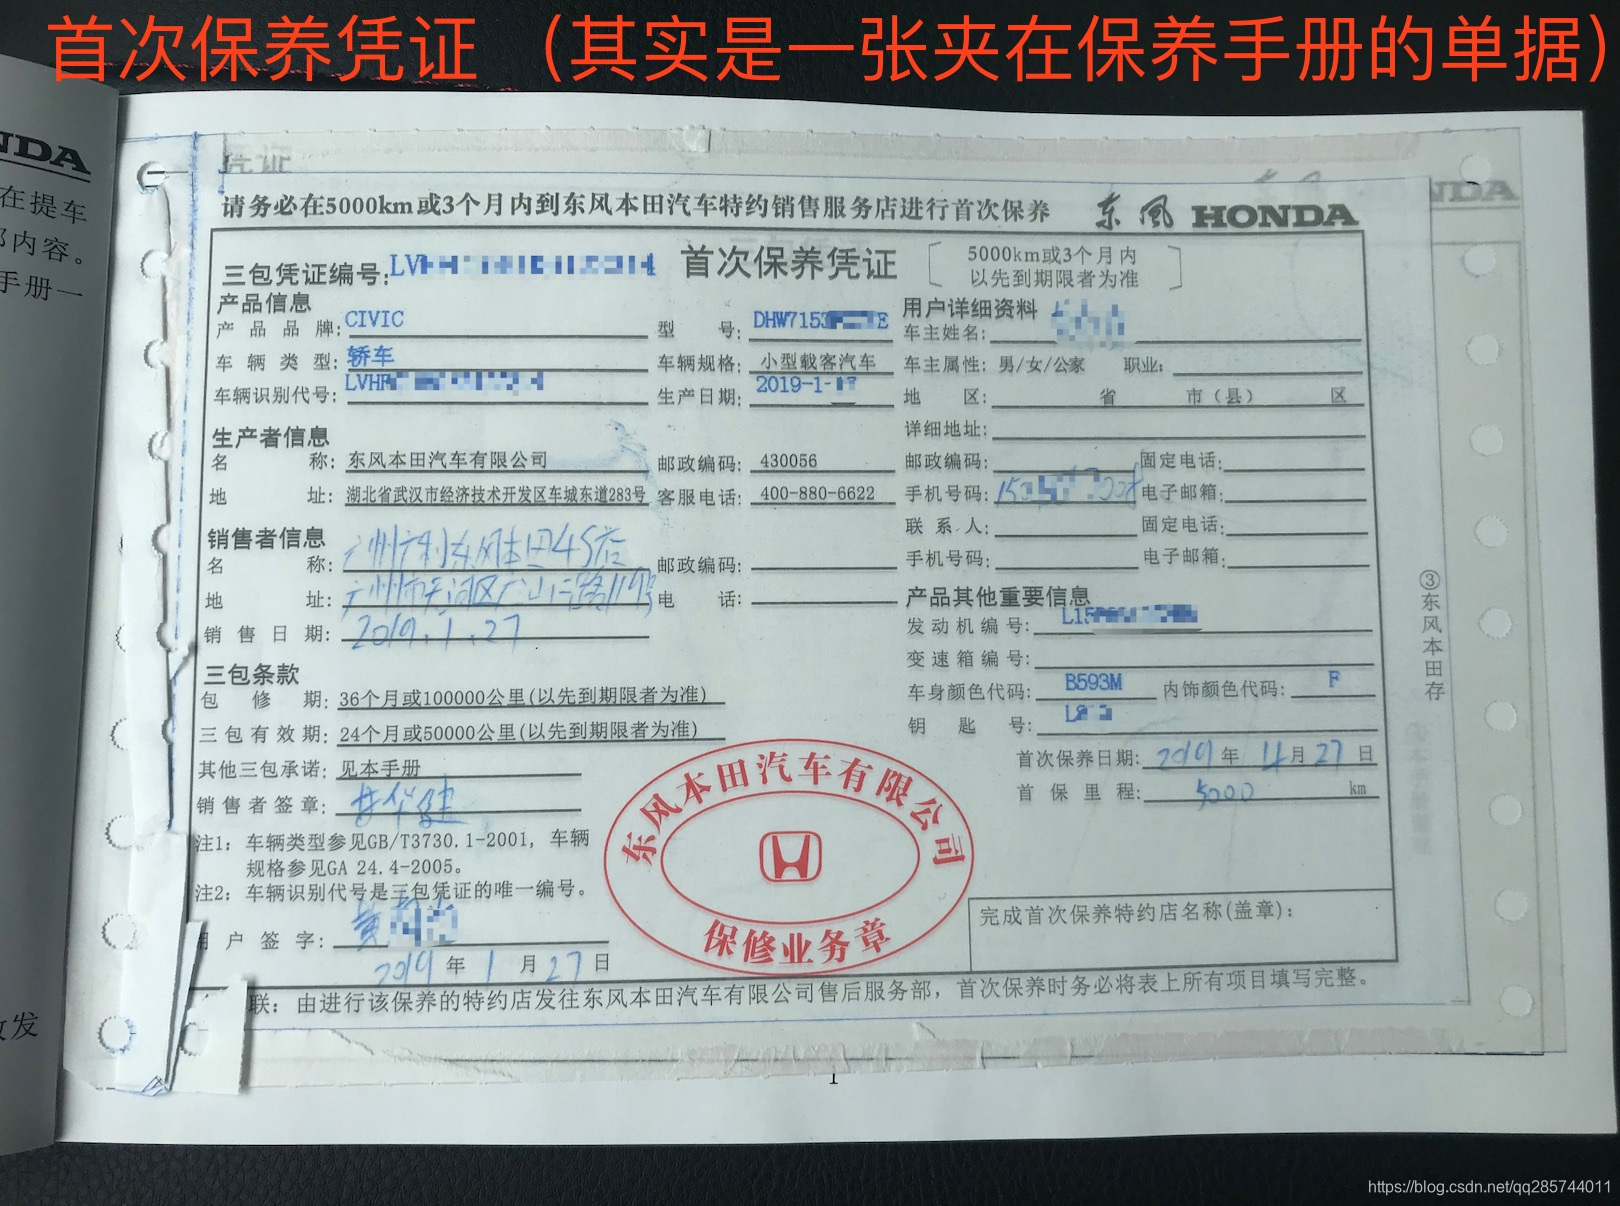 首次保养凭证 （其实是一张夹在保养手册的单据）
NDA
在提车
部内容。
手册一
凭证
NDA
请务必在5000km或3个月内到东风本田汽车特约销售服务店进行首次保养 东风 HONDA
三包凭证编号: LV 首次保养凭证 5000km或3个月内
以先到期限者为准
产品信息 用户详细资料
产品品牌: CIVIC 型 号: DHW7153 E 车主姓名:
车辆类型: 轿车 车辆规格: 小型载客汽车 车主属性: 男/女/公家 职业:
车辆识别代号: LVHR 生产日期: 2019-1- 地 区: 省 市（县） 区
详细地址:
生产者信息
名 称: 东风本田汽车有限公司 邮政编码: 430056 邮政编码: 固定电话:
地 址: 湖北省武汉市经济技术开发区车城东道283号 客服电话: 400-880-6622 手机号码: 电子邮箱:
销售者信息 联系人: 固定电话:
名 称: 广州广利东风本田4S店 邮政编码: 手机号码: 电子邮箱:
地 址: 广州市天河区广山二路119号 电 话: 产品其他重要信息
销售日期: 2019.1.27 发动机编号: L15
变速箱编号:
三包条款
包 修 期: 36个月或100000公里(以先到期限者为准) 车身颜色代码: B593M 内饰颜色代码: F
三包有效期: 24个月或50000公里(以先到期限者为准) 钥 匙 号: L
其他三包承诺: 见本手册 首次保养日期: 2019 年 4月 27 日
销售者签章: 首保里程: 5000 km
注1: 车辆类型参见GB/T3730.1-2001, 车辆
规格参见GA 24.4-2005。
注2: 车辆识别代号是三包凭证的唯一编号。
用户签字: 黄
2019 年 1 月 27 日
东风本田汽车有限公司
保修业务章
完成首次保养特约店名称(盖章):
联: 由进行该保养的特约店发往东风本田汽车有限公司售后服务部, 首次保养时务必将表上所有项目填写完整。
③东风本田存
发
1
https://blog.csdn.net/qq285744011